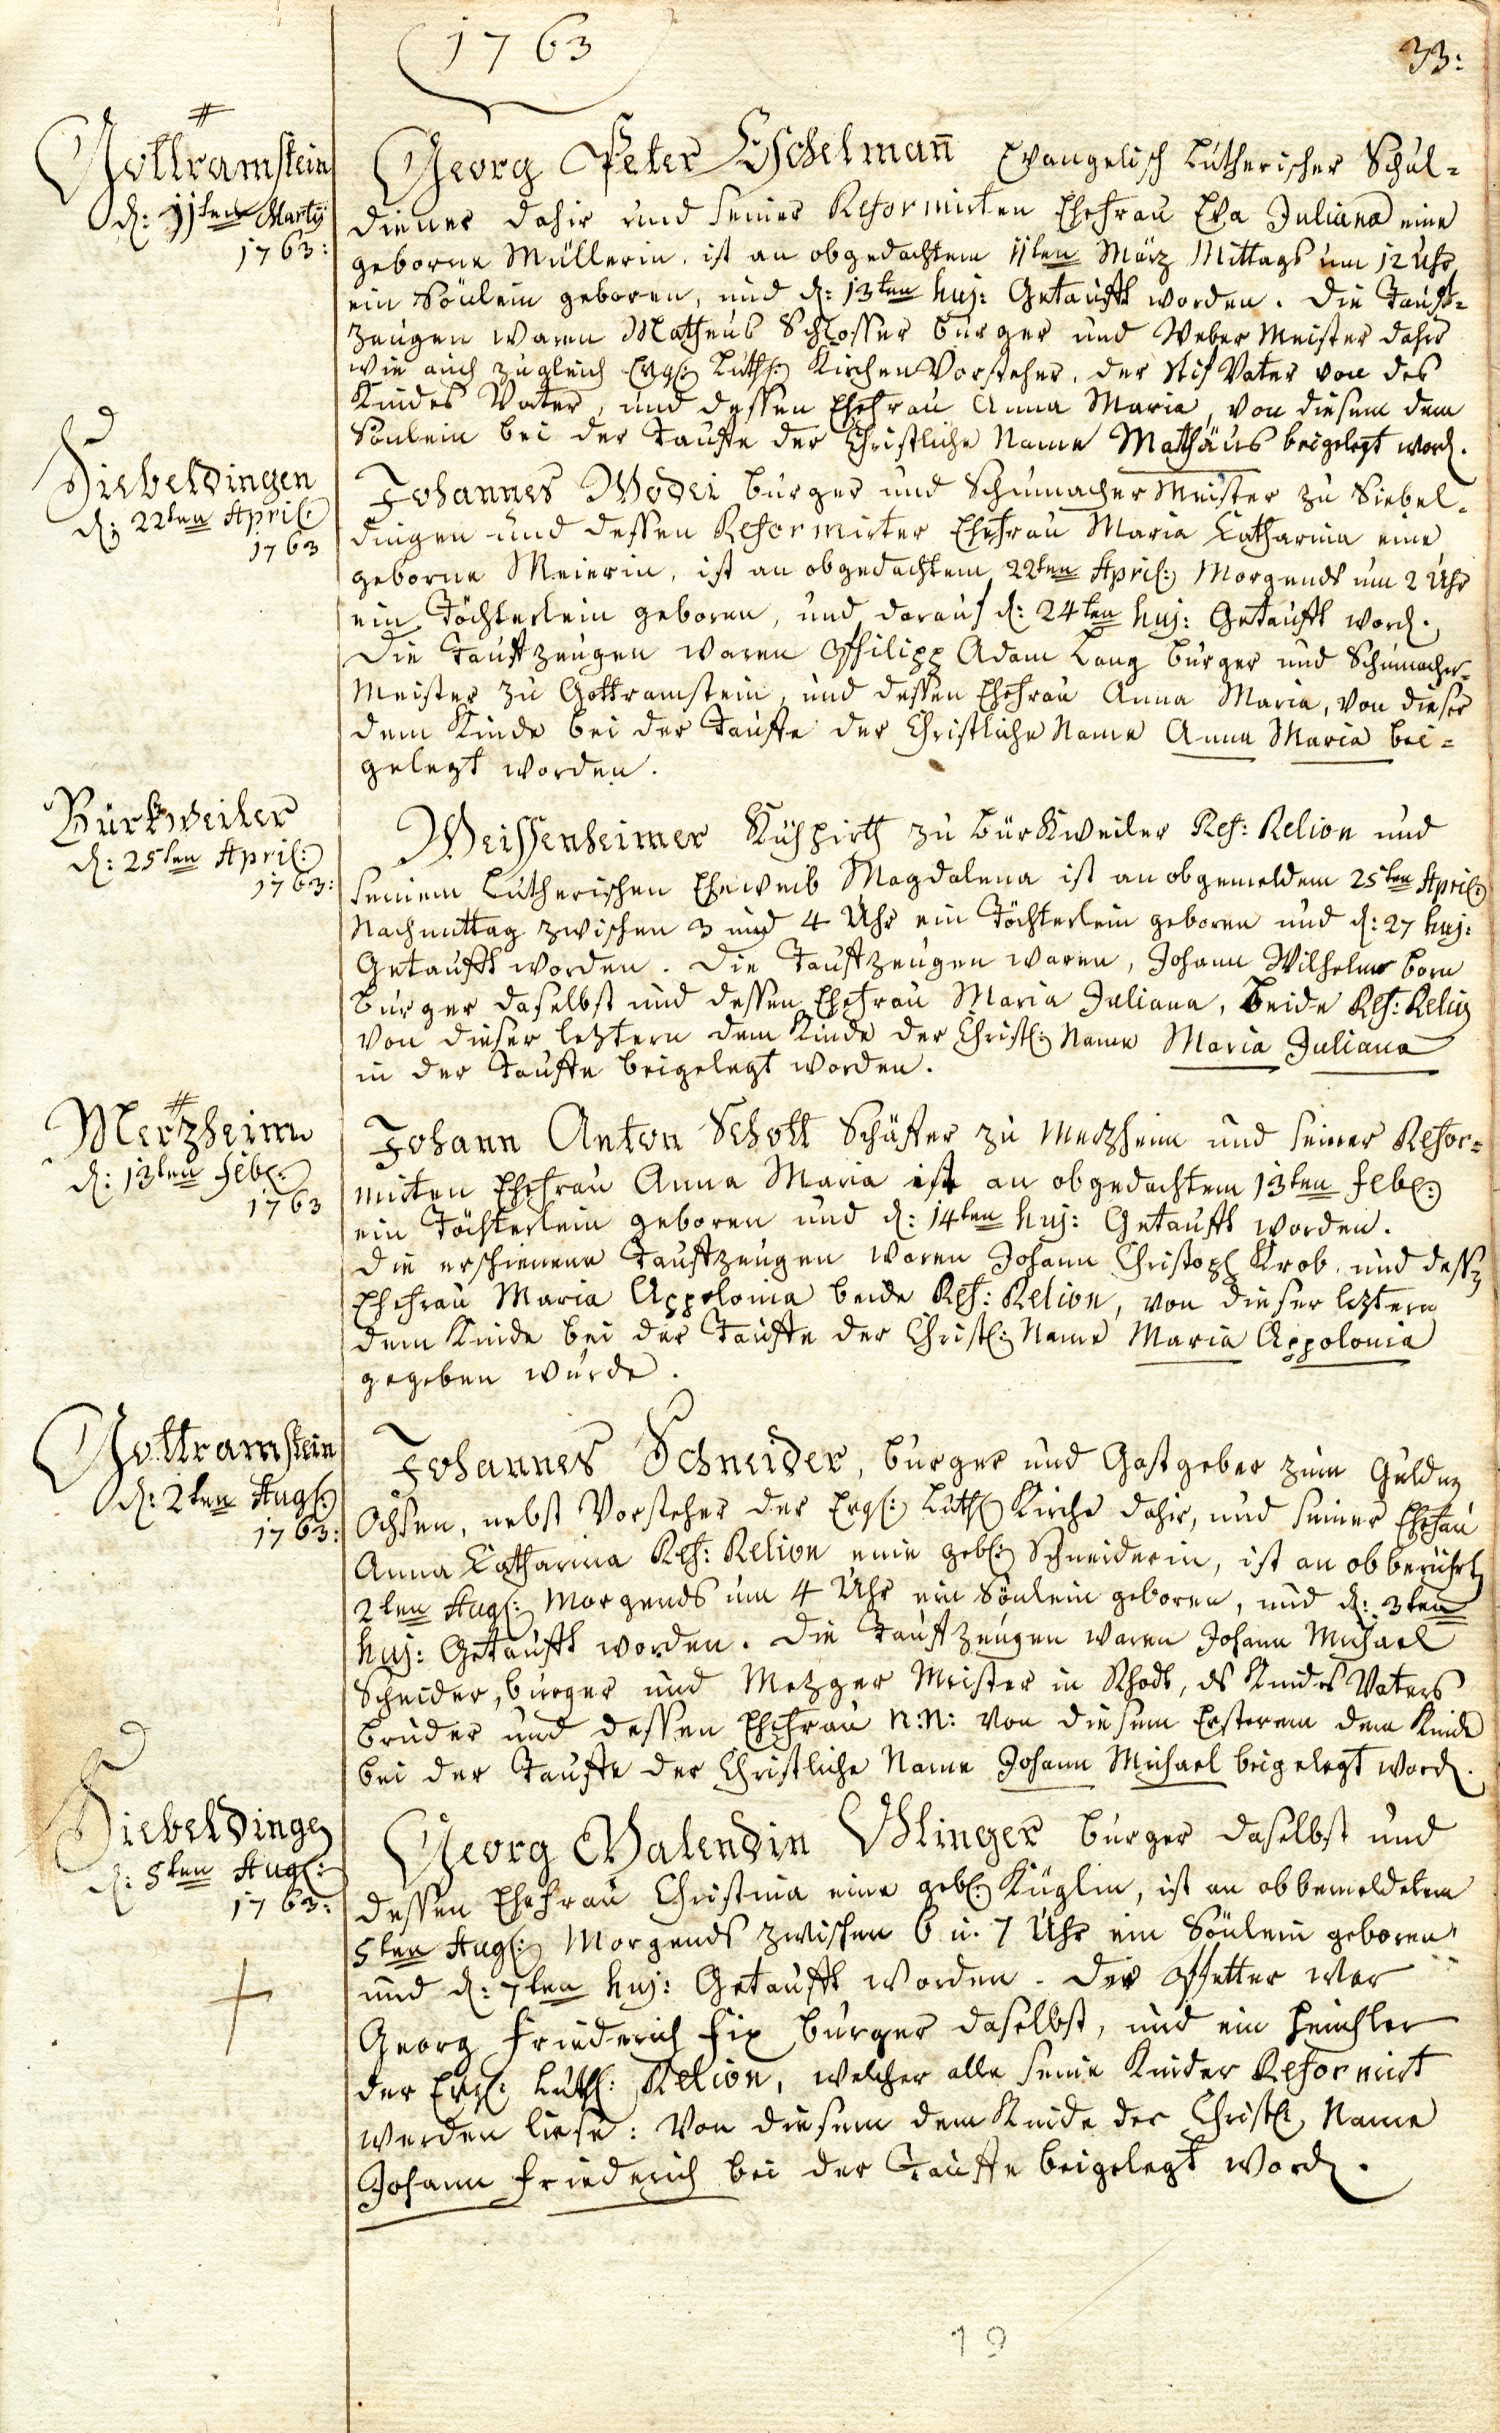 1763
33:
#
Gottramstein
d: 11ten Martÿ
1763:
Georg Peter Eschelman̄ Evangelisch Lutherischer Schul=
diener dahir und seiner Reformirten Ehefrau Eva Juliana eine
geborne Müllerin, ist an obgedachtem 11ten März Mittags um 12 Uhr
ein Sönlein geboren, und d: 13ten huj: Getaufft worden. Die Tauff=
zeugen waren Matheus Schlosser burger und Weber Meister dahir
wie auch zugleich Evg: Luth: Kirchen Vorsteher, der Stif Vater von des
Kindes Vater, und dessen Ehefrau Anna Maria, von diesem dem
Sönlein bei der Tauffe der Christliche Name Mathäus beigelegt word.
Siebeldingen
d: 22ten April:
1763
Johannes Wodei burger und Schumacher Meister zu Siebel=
dingen und dessen Reformirter Ehefrau Maria Catharina eine
geborne Meierin, ist an obgedachtem 22ten April: Morgends um 2 Uhr
ein Töchterlein geboren, und darauf d: 24ten huj: Getaufft word.
Die Tauffzeugen waren Philipp Adam Lang burger und Schumacher=
Meister zu Gottramstein, und dessen Ehefrau Anna Maria, von dieser
dem Kinde bei der Tauffe der Christliche Name Anna Maria bei=
gelegt worden.
Bürkweiler
d: 25ten April:
1763:
Weissenheimer Kühhirth zu Bürkweiler Ref: Relion und
seinem Lutherischen Eheweib Magdalena ist an obgemeldem 25ten April:
Nachmittag zwischen 3 und 4 Uhr ein Töchterlein geboren und d: 27 huj:
Getaufft worden. Die Tauffzeugen waren, Johann Wilhelm born
burger daselbst und dessen Ehefrau Maria Juliana, beide Ref: Relig
von dieser leztern dem Kinde der Christl: Name Maria Juliana
in der Tauffe beigelegt worden.
#
Mertzheim
d: 13ten Feb:
1763
Johann Anton Schott Schäffer zu Merzheim und seiner Refor=
mirten Ehefrau Anna Maria ist an obgedachtem 13ten Feb:
ein Töchterlein geboren und d: 14ten huj: Getaufft worden.
Die erschienene Tauffzeugen waren Johann Christoph Krob, und dess
Ehefrau Maria Appolonia beide Ref: Relion, von dieser leztern
dem Kinde bei der Tauffe der Christl: Name Maria Appolonia
gegeben wurde.
Gottramstein
d: 2ten Aug:
1763:
Johannes Schneider, burger und Gastgeber zum Gulden
Ochsen, nebst Vorsteher der Evg: Luth: Kirche dahir, und seiner Ehefrau
Anna Catharina Ref: Relion eine geb: Schneiderin, ist an obberührt
2ten Aug: Morgends um 4 Uhr ein Sönlein geboren, und d: 3ten
huj: Getaufft worden. Die Tauffzeugen waren Johann Michael
Scheider, burger und Metzger Meister in Rhodt, ds Kindes Vaters
bruder und dessen Ehefrau N:N: von diesem Ersterem dem Kinde
bei der Tauffe der Christliche Name Johann Michael beigelegt word.
Siebeldingen
d: 5ten Aug:
1763:
Georg Valendin Eslinger burger daselbst und
dessen Ehefrau Christina eine geb: Küglin, ist an obbemeldetem
5ten Aug: Morgends zwischen 6 u. 7 Uhr ein Sönlein geboren
und d: 7ten huj: Getaufft worden. Der Pfetter war
Georg Friederich Fix burger daselbst, und ein Heuchler
der Evg: Luth: Relion, welcher alle seine Kinder Reformirt
werden liese: Von diesem dem Kinde der Christl: Name
Johann Friederich bei der Tauffe beigelegt word.
19